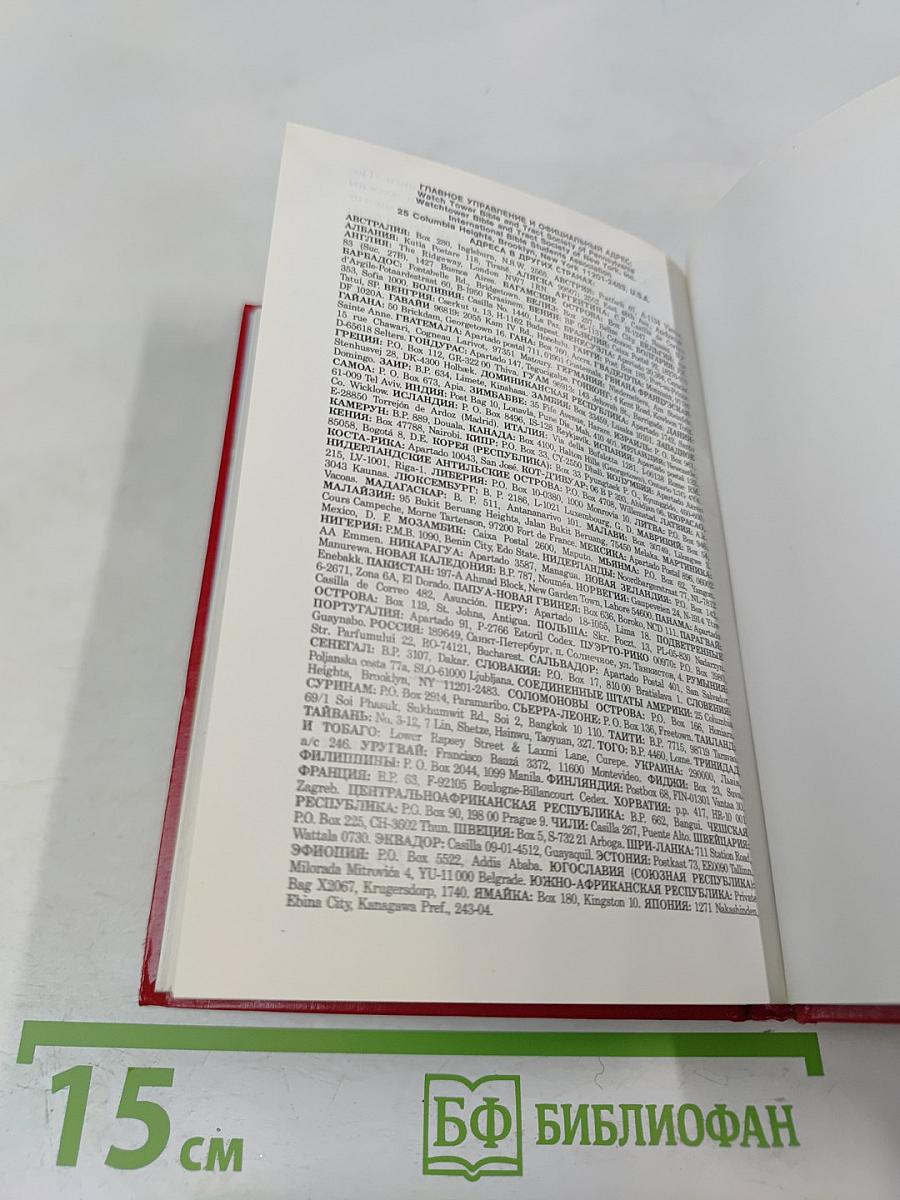 ГЛАВНОЕ УПРАВЛЕНИЕ И ОФИЦИАЛЬНЫЙ АДРЕС:
Watch Tower Bible and Tract Society of Pennsylvania
Watchtower Bible and Tract Society of New York, Inc.
International Bible Students Association
25 Columbia Heights, Brooklyn, New York 11201-2483, U.S.A.
АДРЕСА В ДРУГИХ СТРАНАХ:
АВСТРАЛИЯ: Box 280, Ingleburn, N.S.W. 2565. АВСТРИЯ:
АЛБАНИЯ: Kutia Postare 118, Tirana. АЛЯСКА
АНГЛИЯ: The Ridgeway, London
83 (Suc. 27B), 1427 Buenos Aires. БАГАМСКИЕ ОСТРОВА:
БАРБАДОС: Fontabelle Rd., Bridgetown. БЕЛИЗ: Box
d'Argile-Potaardestraat 60, B-1950 Kraainem. БЕНИН: BP 06-1131,
353, Sofia 1000. БОЛИВИЯ: Casilla No. 1440, La Paz. БРАЗИЛИЯ:
Tatuí, SP. ВЕНГРИЯ: Cserkut u. 13, H-1162 Budapest. ВЕНЕСУЭЛА:
DF 1020A. ГАВАЙИ 96819: 2055 Kam IV Rd., Honolulu. ГАИТИ:
ГАЙАНА: 50 Brickdam, Georgetown 16. ГАНА: Box 760, Accra. ГВАДЕЛУПА:
Sainte Anne. ГВАТЕМАЛА: Apartado postal 711, 01901 Guatemala. ГВИАНА ФРАНЦУЗСКАЯ:
15 rue Chawari, Cogneau Larivot, 97351 Matoury. ГЕРМАНИЯ:
D-65618 Selters. ГОНДУРАС: Apartado 147, Tegucigalpa. ГОНКОНГ: 4 Kent Road, Kowloon Tong.
ГРЕЦИЯ: P.O. Box 112, GR-322 00 Thiva. ГУАМ 96913: 143 Jehovah St., Barrigada. ДАНИЯ:
Stenhusvej 28, DK-4300 Holbæk. ДОМИНИКАНСКАЯ РЕСПУБЛИКА: Apartado 1742, Santo
Domingo. ЗАИР: B.P. 634, Limete, Kinshasa. ЗАМБИЯ: Box 33459, Lusaka 10101. ЗАПАДНОЕ
САМОА: P. O. Box 673, Apia. ЗИМБАБВЕ: 35 Fife Avenue, Harare. ИЗРАИЛЬ: P. O. Box 961,
61-009 Tel Aviv. ИНДИЯ: Post Bag 10, Lonavla, Pune Dis., Mah. 410 401. ИРЛАНДИЯ: Newcastle,
Co. Wicklow. ИСЛАНДИЯ: P. O. Box 8496, IS-128 Reykjavík. ИСПАНИЯ: Apartado 132,
E-28850 Torrejón de Ardoz (Madrid). ИТАЛИЯ: Via della Bufalotta 1281, I-00138 Rome RM.
КАМЕРУН: B.P. 889, Douala. КАНАДА: Box 4100, Halton Hills (Georgetown), Ontario L7G 4Y4.
КЕНИЯ: Box 47788, Nairobi. КИПР: P.O. Box 33, CY-2550 Dhali. КОЛУМБИЯ: Apartado Aéreo
85058, Bogotá 8, D.E. КОРЕЯ (РЕСПУБЛИКА): Box 33 Pyungtaek P. O., Kyunggido, 450-600.
КОСТА-РИКА: Apartado 10043, San José. КОТ-Д'ИВУАР: 06 B P 393, Abidjan 06. КЮРАСАО,
НИДЕРЛАНДСКИЕ АНТИЛЬСКИЕ ОСТРОВА: P.O. Box 4708, Willemstad. ЛАТВИЯ: A.k.
215, LV-1001, Riga-1. ЛИБЕРИЯ: P.O. Box 10-0380, 1000 Monrovia 10. ЛИТВА: P.D. Box 946,
3043 Kaunas. ЛЮКСЕМБУРГ: B. P. 2186, L-1021 Luxembourg, G. D. МАВРИКИЙ: Box 54,
Vacoas. МАДАГАСКАР: B. P. 511, Antananarivo 101. МАЛАВИ: Box 30749, Lilongwe 3.
МАЛАЙЗИЯ: 95 Bukit Beruang Heights, Jalan Bukit Beruang, 75450 Melaka. МАРТИНИКА:
Cours Campeche, Morne Tartenson, 97200 Fort de France. МЕКСИКА: Apartado Postal 896, 06002
Mexico, D. F. МОЗАМБИК: Caixa Postal 2600, Maputo. МЬЯНМА: P.O. Box 62, Yangon.
НИГЕРИЯ: P.M.B. 1090, Benin City, Edo State. НИДЕРЛАНДЫ: Noordbargerstraat 77, NL-7812
AA Emmen. НИКАРАГУА: Apartado 3587, Managua. НОВАЯ ЗЕЛАНДИЯ: P.O. Box 142,
Manurewa. НОВАЯ КАЛЕДОНИЯ: B.P. 787, Nouméa. НОРВЕГИЯ: Gaupeveien 24, N-1914 Ytre
Enebakk. ПАКИСТАН: 197-A Ahmad Block, New Garden Town, Lahore 54600. ПАНАМА: Apartado
6-2671, Zona 6A, El Dorado. ПАПУА-НОВАЯ ГВИНЕЯ: Box 636, Boroko, NCD 111. ПАРАГВАЙ:
Casilla de Correo 482, Asunción. ПЕРУ: Apartado 18-1055, Lima 18. ПОДВЕТРЕННЫЕ
ОСТРОВА: Box 119, St. Johns, Antigua. ПОЛЬША: Skr. Poczt. 13, PL-05-830 Nadarzyn.
ПОРТУГАЛИЯ: Apartado 91, P-2766 Estoril Codex. ПУЭРТО-РИКО 00970: P.O. Box 3980,
Guaynabo. РОССИЯ: 189649, Санкт-Петербург, п. Солнечное, ул. Танкистов, 4. РУМЫНИЯ:
Str. Parfumului 22, RO-74121, Bucharest. САЛЬВАДОР: Apartado Postal 401, San Salvador.
СЕНЕГАЛ: B.P. 3107, Dakar. СЛОВАКИЯ: P.O. Box 17, 810 00 Bratislava 1. СЛОВЕНИЯ:
Poljanska cesta 77a, SLO-61000 Ljubljana. СОЕДИНЕННЫЕ ШТАТЫ АМЕРИКИ: 25 Columbia
Heights, Brooklyn, NY 11201-2483. СОЛОМОНОВЫ ОСТРОВА: P.O. Box 166, Honiara.
СУРИНАМ: P.O. Box 2914, Paramaribo. СЬЕРРА-ЛЕОНЕ: P. O. Box 136, Freetown. ТАИЛАНД:
69/1 Soi Phasuk, Sukhumwit Rd., Soi 2, Bangkok 10 110. ТАИТИ: B.P. 7715, 98719 Taravao.
ТАЙВАНЬ: No. 3-12, 7 Lin, Shetze, Hsinwu, Taoyuan, 327. ТОГО: B.P. 4460, Lome. ТРИНИДАД
И ТОБАГО: Lower Rapsey Street & Laxmi Lane, Curepe. УКРАИНА: 290000, Львів,
а/с 246. УРУГВАЙ: Francisco Bauzá 3372, 11600 Montevideo. ФИДЖИ: Box 23, Suva.
ФИЛИППИНЫ: P. O. Box 2044, 1099 Manila. ФИНЛЯНДИЯ: Postbox 68, FIN-01301 Vantaa 30.
ФРАНЦИЯ: B.P. 63, F-92105 Boulogne-Billancourt Cedex. ХОРВАТИЯ: p.p. 417, HR-10 001
Zagreb. ЦЕНТРАЛЬНОАФРИКАНСКАЯ РЕСПУБЛИКА: B.P. 662, Bangui. ЧЕШСКАЯ
РЕСПУБЛИКА: P.O. Box 90, 198 00 Prague 9. ЧИЛИ: Casilla 267, Puente Alto. ШВЕЙЦАРИЯ:
P.O. Box 225, CH-3602 Thun. ШВЕЦИЯ: Box 5, S-732 21 Arboga. ШРИ-ЛАНКА: 711 Station Road,
Wattala 0730. ЭКВАДОР: Casilla 09-01-4512, Guayaquil. ЭСТОНИЯ: Postkast 73, EE0090 Tallinn.
ЭФИОПИЯ: P.O. Box 5522, Addis Ababa. ЮГОСЛАВИЯ (СОЮЗНАЯ РЕСПУБЛИКА):
Milorada Mitrovića 4, YU-11 000 Belgrade. ЮЖНО-АФРИКАНСКАЯ РЕСПУБЛИКА: Private
Bag X2067, Krugersdorp, 1740. ЯМАЙКА: Box 180, Kingston 10. ЯПОНИЯ: 1271 Nakashinden,
Ebina City, Kanagawa Pref., 243-04.
15 см
БФ БИБЛИОФАН